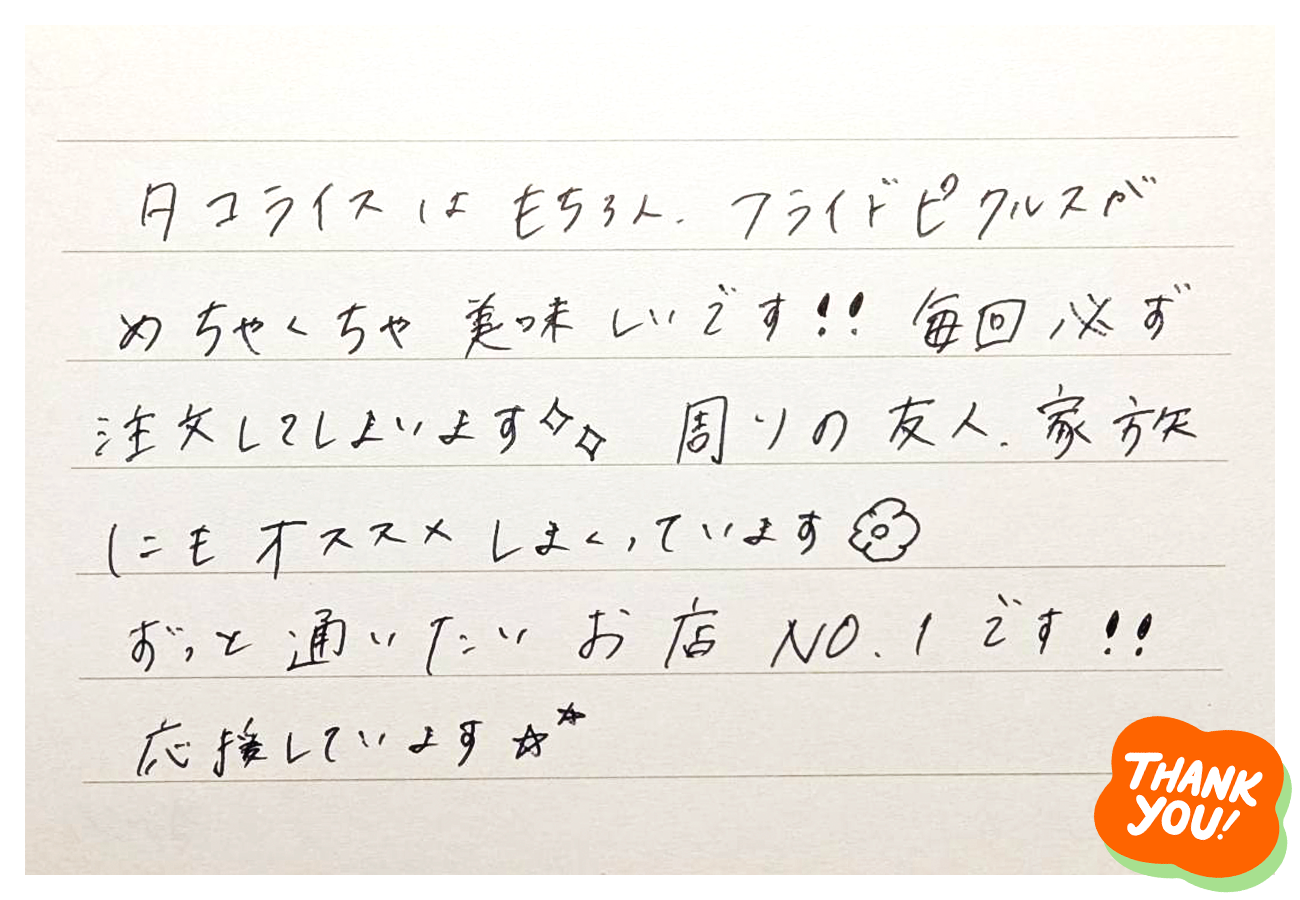 タコライスは もちろん、フライドピクルスが
めちゃくちゃ 美味しいです!! 毎回必ず
注文してしまいます✧✧ 周りの友人、家族
にもオススメしまくっています
ずっと通いたいお店 NO.1です!!
応援しています☆☆
THANK
YOU!